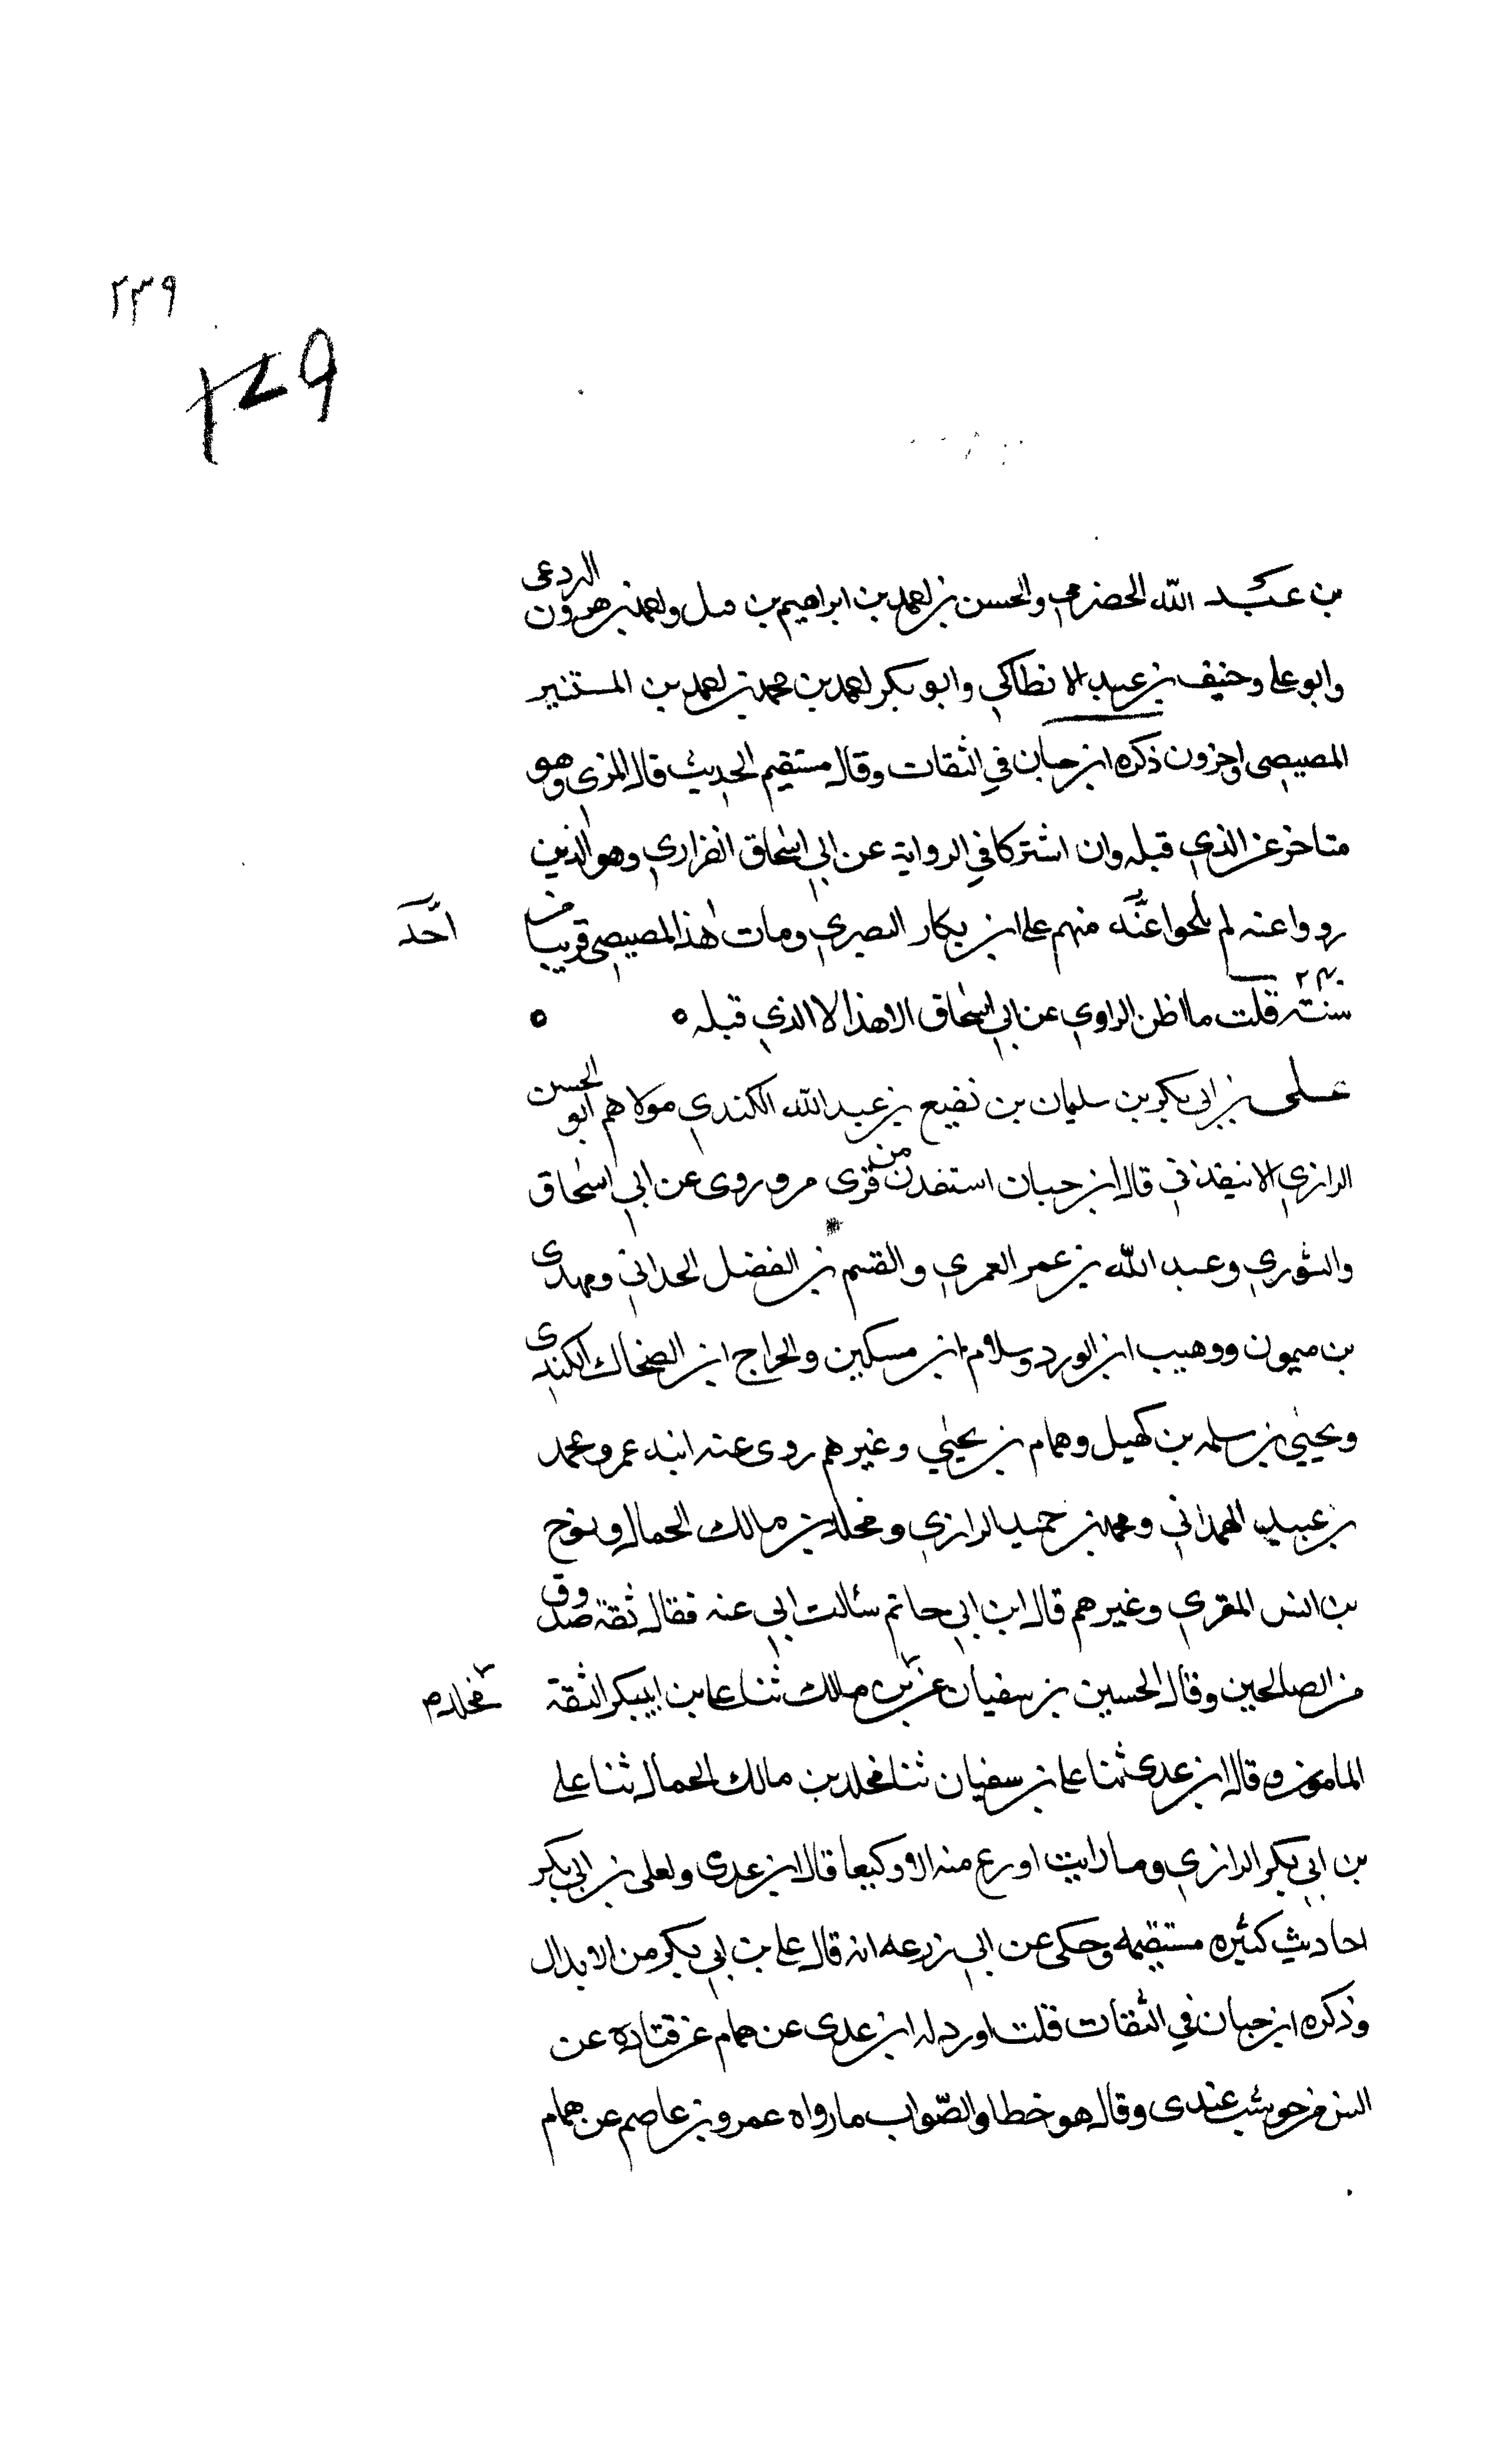 ٢٣٩
بن عبد الله الحضرمي والحسن بن احمد بن ابراهيم بن فيل واحمد بن هرون البردعى
وابو على وحنيف بن عبيد الانطاكي وابو بكر احمد بن محمد بن احمد بن المستنير
المصيصى واخرون ذكره ابن حبان في الثقات وقال مستقيم الحديث قال المزى وهو
متاخر عن الذي قبله وان اشتركا في الرواية عن ابي اسحاق الفزاري وهو الذين
رووا عنه لم يلحوا عنه منهم على ابن بكار البصري ومات هذا المصيصى قريبا من
احد
سنة ٢٤٠ قلت ما اظن الراوي عن ابي اسحاق الا هذا لا الذي قبله ٥ ٥
على بن ابى بكر بن سليمان بن نفيع بن عبد الله الكندي مولاهم ابو الحسن
الرازي الاسفذني قال ابن حبان استفدن من قرى مرو روى عن ابي اسحاق
والثوري وعبد الله بن عمر العمري والقسم بن الفضل الحداني ومهدى
بن ميمون ووهيب ابن الورد وسلام ابن مسكين والجراح ابن الضحاك الكندى
ويحيي بن سلمه بن كهيل وهمام بن يحيي وغيرهم روى عنه ابنه عمرو محمد
بن عبيد الهمداني ومحمد بن حميد الرازي ومخلد بن مالك الجمال ونوح
بن انس المقري وغيرهم قال ابن ابي حاتم سئالت ابي عنه فقال ثقة صدوق
من الصالحين وقال الحسين بن سفيان عن بن مالك ثنا على بن ابى بكر الثقة
مخلد م
المامون وقال ابن عدى ثنا على بن سفيان ثنا مخلد بن مالك الجمال ثنا على
بن ابي بكر الرازي وما رايت اورع منه الا وكيعا قال ابن عدى ولعلى بن ابي بكر
احاديث كثيره مستقيمه وحكى عن ابي زرعه انه قال على بن ابي بكر من الابدال
وذكره ابن حبان في الثقات قلت اورد له ابن عدى عن همام عن قتادة عن
انس عندى وقال هو خطا والصواب ما رواه عمرو بن عاصم عن همام